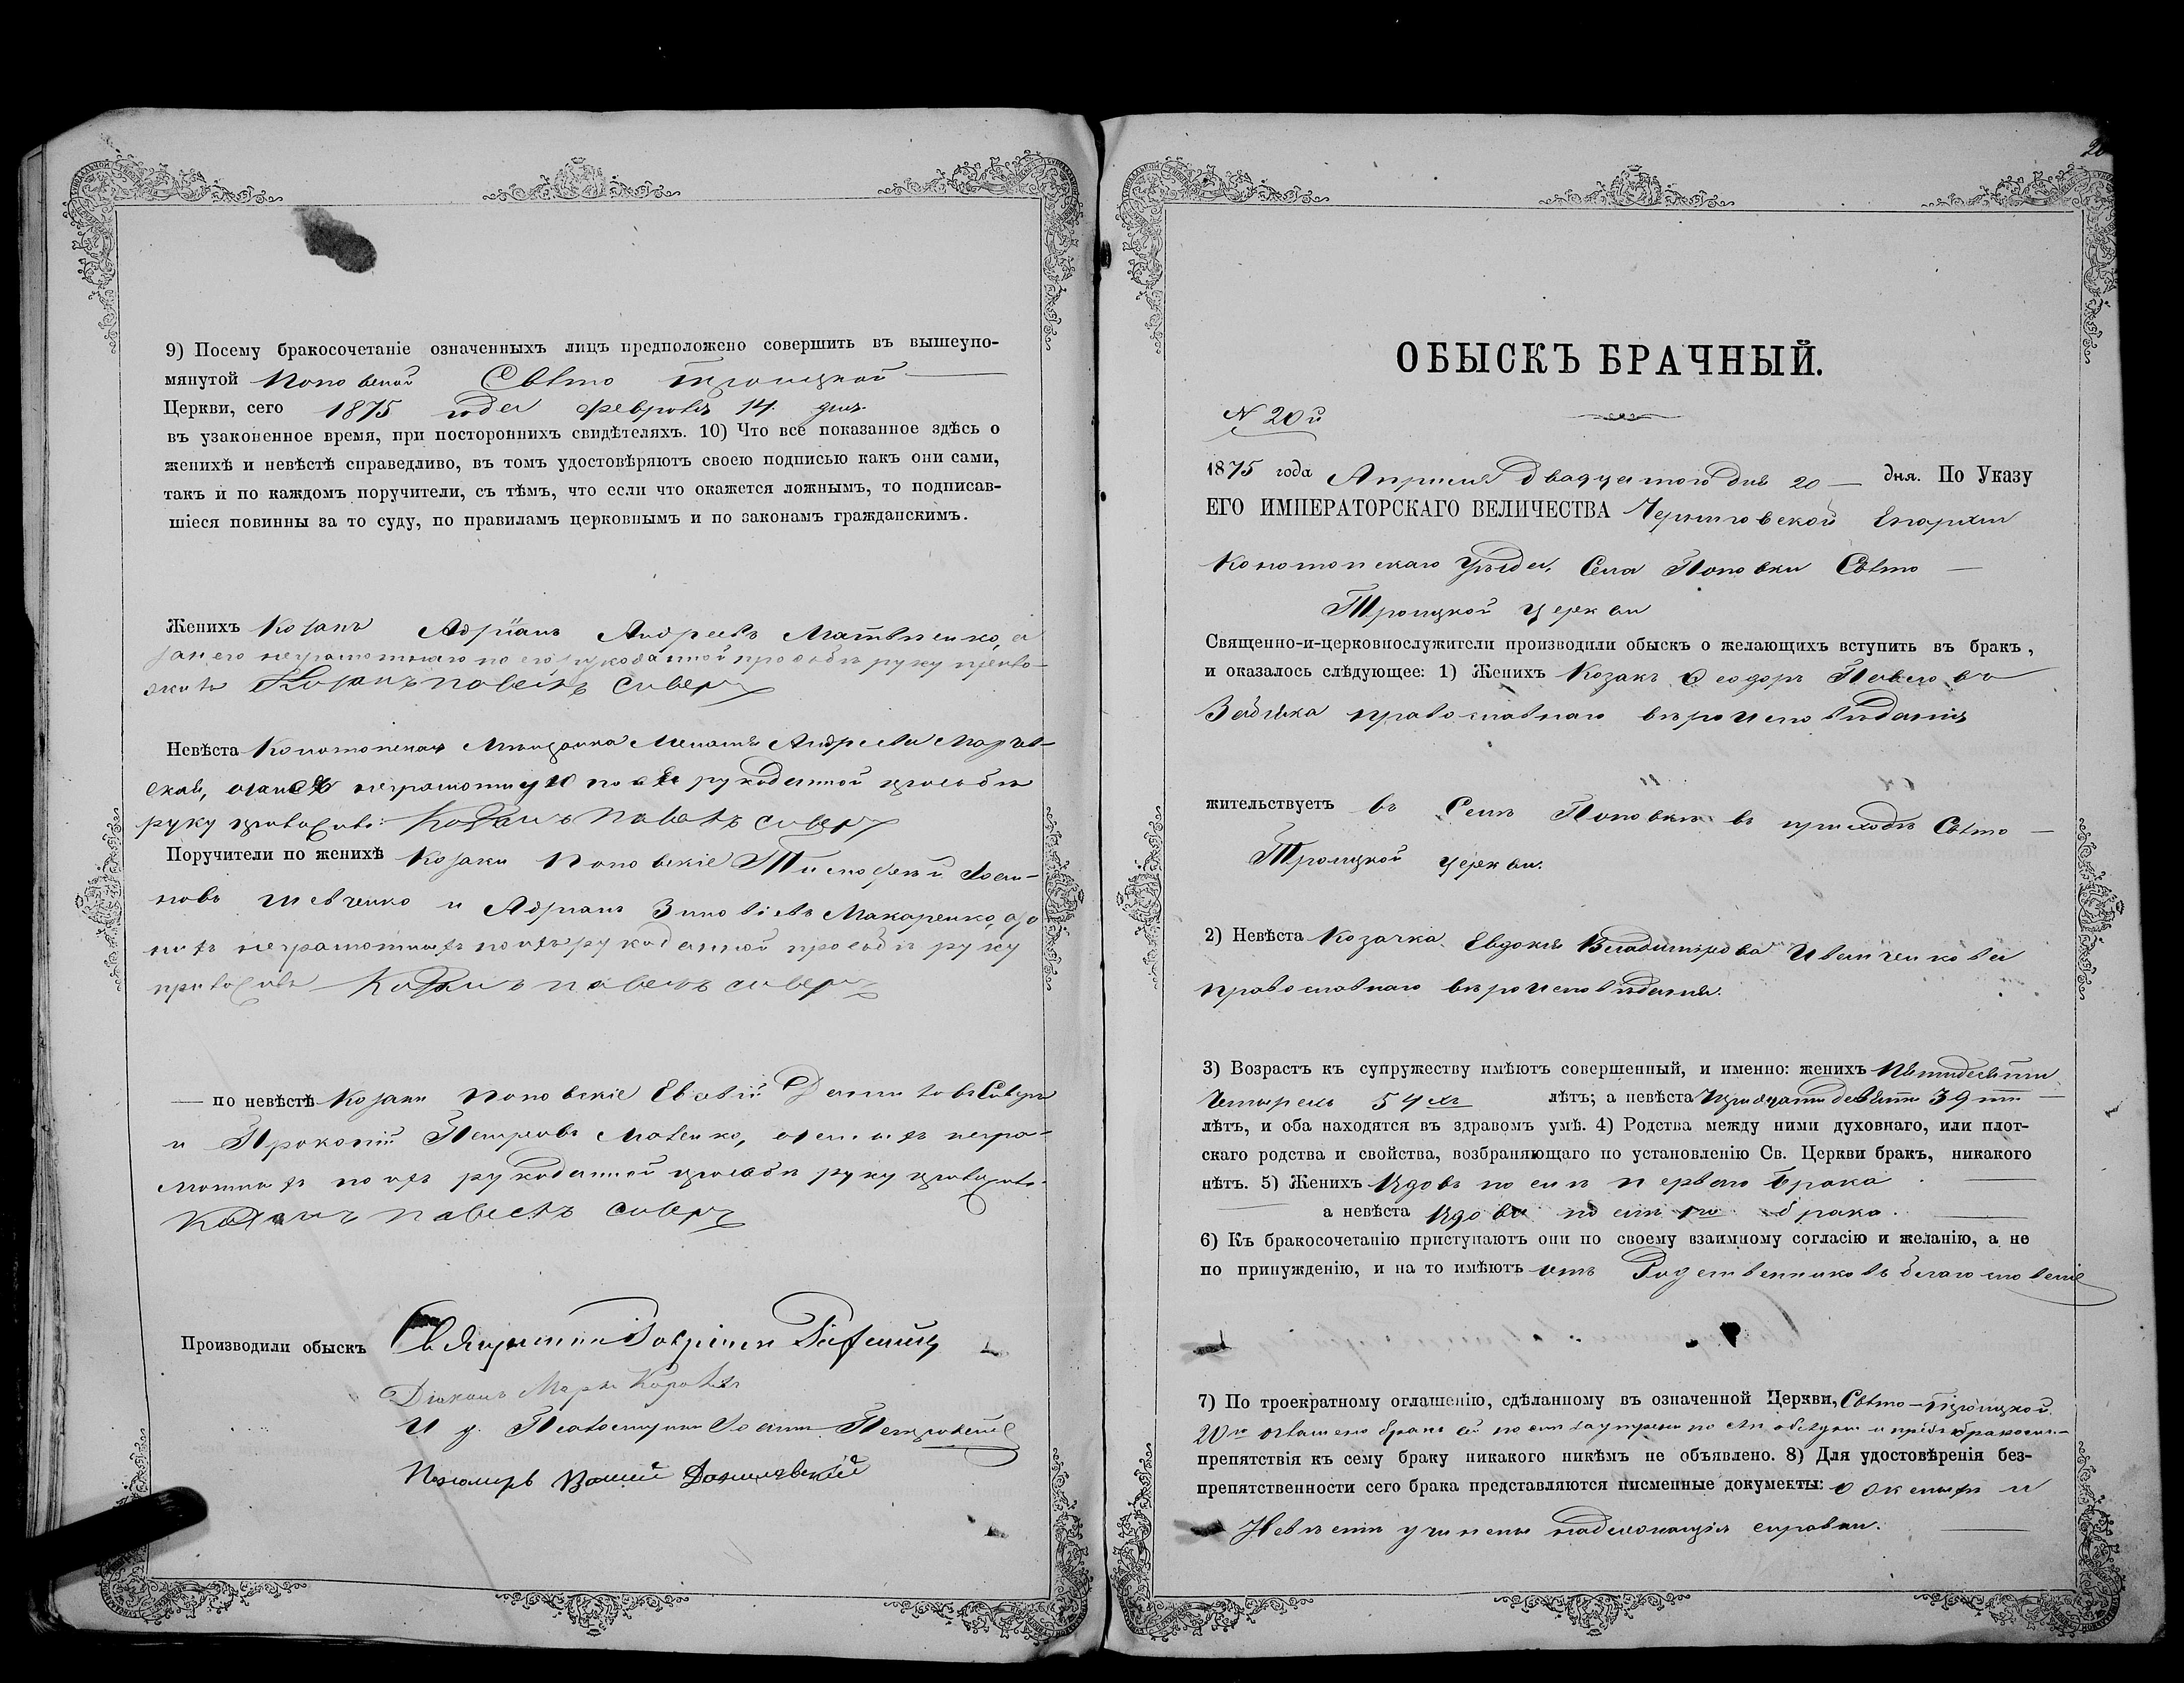 9) Посему бракосочетаніе означенныхъ лицъ предположено совершить въ вышеупо-
мянутой Поповской Свято Троицкой
Церкви, сего 1875 года февраля 14 дня.
въ узаконенное время, при постороннихъ свидѣтеляхъ. 10) Что все показанное здѣсь о
женихѣ и невѣстѣ справедливо, въ томъ удостовѣряютъ своею подписью какъ они сами,
такъ и по каждомъ поручители, съ тѣмъ, что если что окажется ложнымъ, то подписав-
шіеся повинны за то суду, по правиламъ церковнымъ и по законамъ гражданскимъ.
Женихъ Козакъ Адріанъ Андреевъ Матвѣенко, а
за него неграмотнаго по его рукоданной просьбѣ руку прило-
жилъ Козакъ Павелъ Сиверъ
Невѣста Конотопская Мѣщанка Андреева
неграмотную по ея рукоданной просьбѣ
руку приложилъ Козакъ Павелъ Сиверъ
Поручители по женихѣ Козаки Поповскіе Тимофей Іоси-
повъ Шевченко и Адріанъ Зиновіевъ Макаренко, а за
нихъ неграмотныхъ по ихъ рукоданной просьбѣ руку
приложилъ Козакъ Павелъ Сиверъ
— по невѣстѣ Козаки Поповскіе
и Прокопій Петровъ а за нихъ негра-
мотныхъ по ихъ рукоданной просьбѣ руку приложилъ
Козакъ Павелъ Сиверъ
Производили обыскъ Священникъ
Діаконъ Маркъ
И. д. Псаломщика
Пономарь
20
ОБЫСКЪ БРАЧНЫЙ.
N 20й
1875 года Апрѣля двадцатого дня 20 — дня. По Указу
ЕГО ИМПЕРАТОРСКАГО ВЕЛИЧЕСТВА Черниговской Епархіи
Конотопскаго уѣзда, Села Поповки Свято —
Троицкой Церкви
Священно-и-церковнослужители производили обыскъ о желающихъ вступить въ бракъ,
и оказалось слѣдующее: 1) Женихъ Козакъ Ѳеодоръ Павловъ
православнаго вѣроисповѣданія
жительствуетъ въ Селѣ Поповкѣ въ приходѣ Свято —
Троицкой церкви.
2) Невѣста Козачка Евдокія Владимірова Иванченкова
православнаго вѣроисповѣданія.
3) Возрастъ къ супружеству имѣютъ совершенный, и именно: женихъ пятидесяти
четырехъ 54хъ лѣтъ; а невѣста тридцати девяти 39ти
лѣтъ, и оба находятся въ здравомъ умѣ. 4) Родства между ними духовнаго, или плот-
скаго родства и свойства, возбраняющаго по установленію Св. Церкви бракъ, никакого
нѣтъ. 5) Женихъ вдовъ послѣ перваго брака
а невѣста вдова послѣ 1го брака.
6) Къ бракосочетанію приступаютъ они по своему взаимному согласію и желанію, а не
по принужденію, и на то имѣютъ отъ Родственниковъ благословеніе
7) По троекратному оглашенію, сдѣланному въ означенной Церкви, Свято-Троицкой
оглашенъ бракъ сей послѣ
препятствія къ сему браку никакого никѣмъ не объявлено. 8) Для удостовѣренія без-
препятственности сего брака представляются писменные документы: о женихѣ и
Невѣстѣ учинены надлежащія справки.